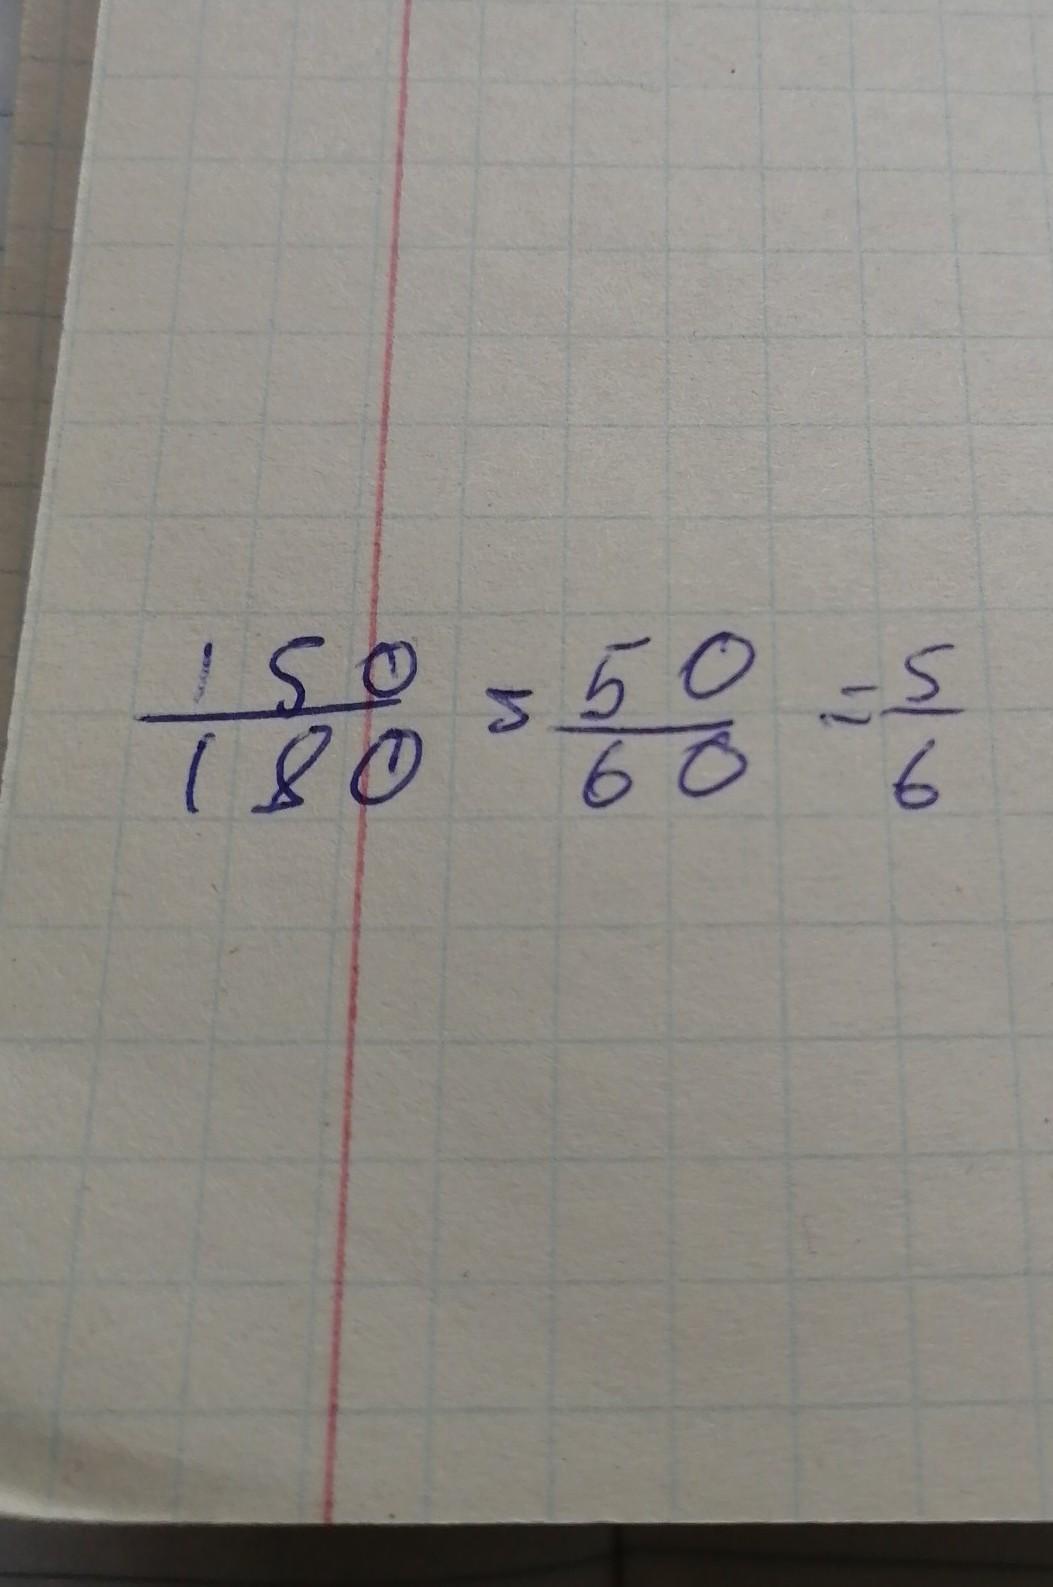 150/180 = 50/60 = 5/6